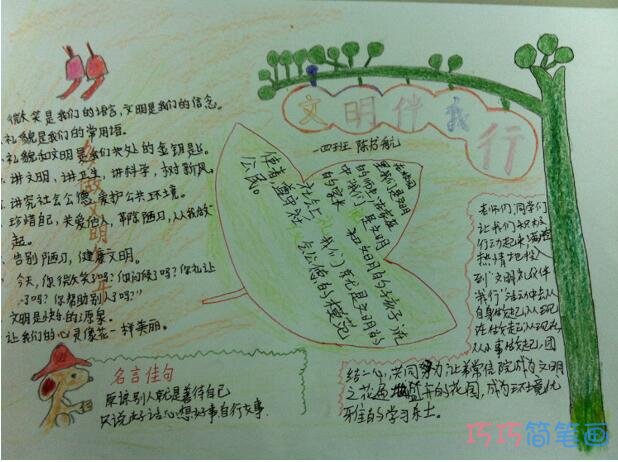 文明伴我行
一四班
微笑是我们的语言,文明是我们的信念。
礼貌是我们的常用语。
礼貌和文明是我们共处的金钥匙。
讲文明,讲卫生,讲科学,树新风。
讲究社会公德,爱护公共环境。
珍惜自己,关爱他人,革除陋习,从我做
起。
告别陋习,健康文明。
今天,你微笑了吗?你问候了吗?你礼让
了吗?你帮助别人了吗?"
文明是快乐的源泉
让我们的心灵像花一样美丽。
名言佳句
原谅别人就是善待自己
只说好话心想好事自行好事
在校园
里我们是文明
的
中我们是文明
社会上我们
使者遵守社会公德的模范
公民。
老师们,同学们
让我们
行动起来,满腔
热情地投入
到"文明礼仪伴
我行"活动中去从
自身做起从
做起从现在
从小事做起,团
结一心,共同努力让
成为文明
之花盛开的花园,成为环境优
雅的学习乐土。
巧巧简笔画